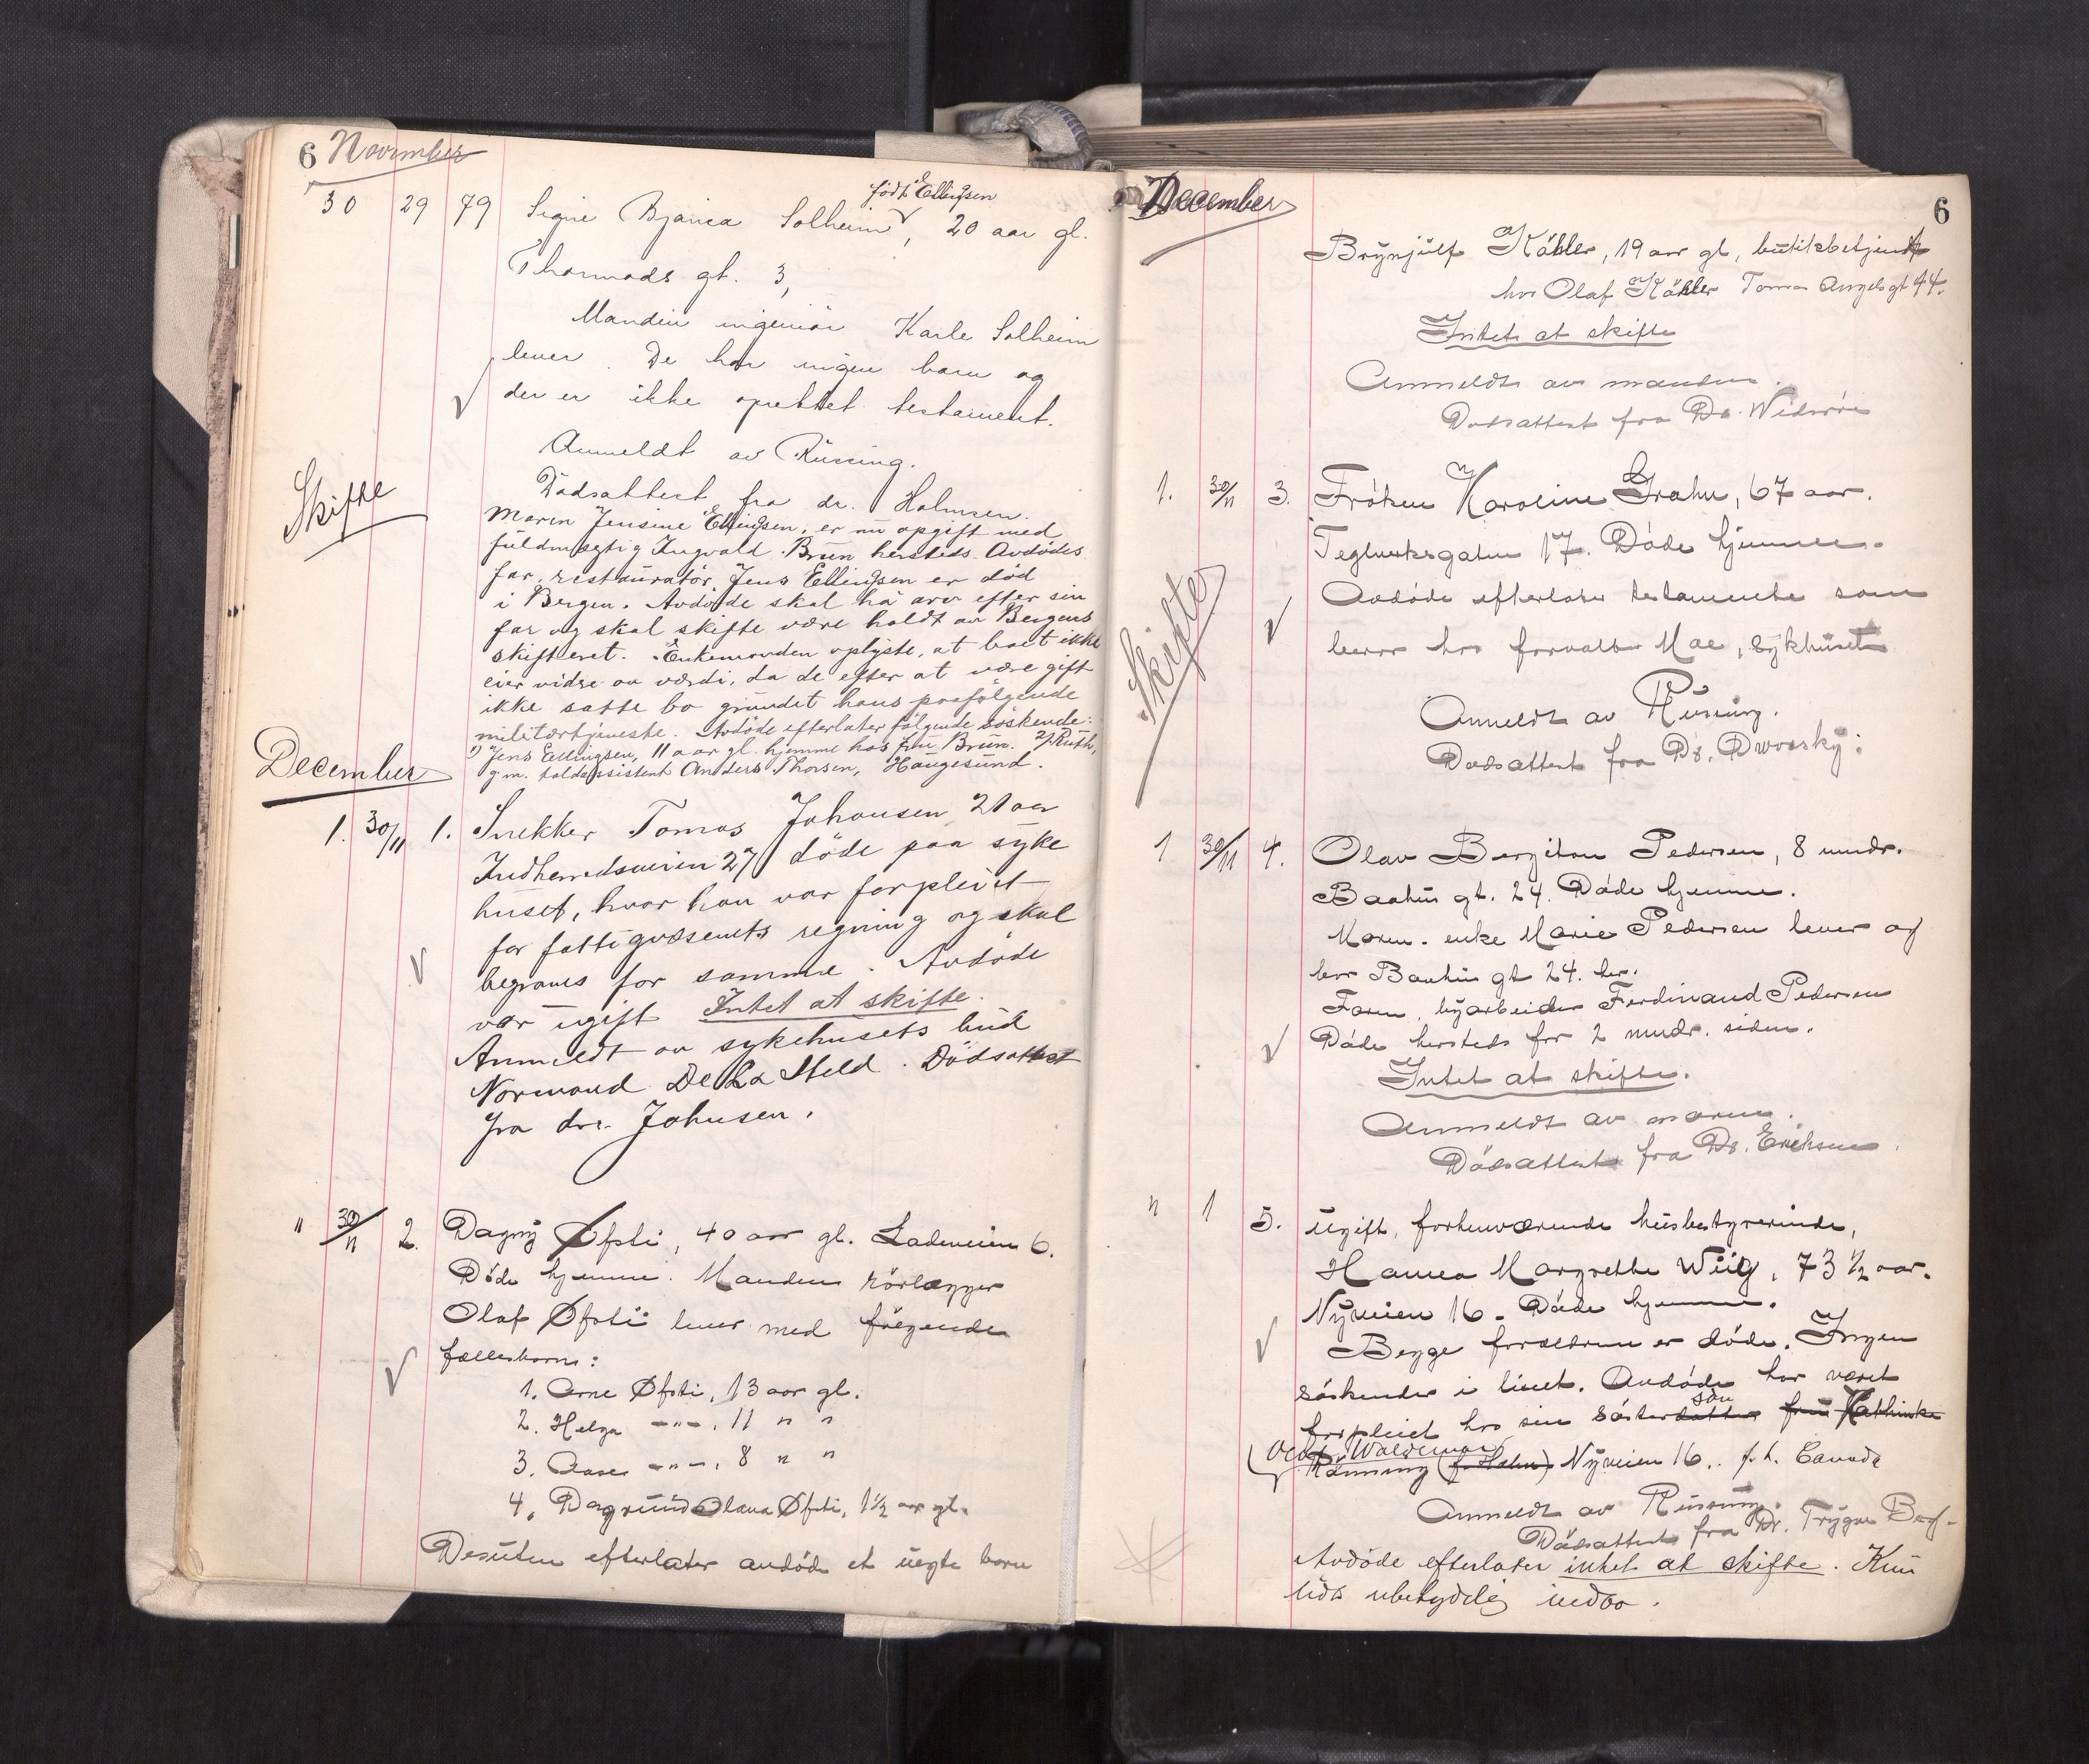 6 November
30 29 79 Signe Bjarnea Solheim, født Ellingsen 20 aar gl.
Thormods gt. 3,
Manden ingeniør Karle Solheim
lever. De har ingen barn og
der er ikke oprettet testament.
Anmeldt av Rüssing.
Dødsattest fra dr. Holmsen.
Skifte
Moren Jensine Ellingsen, er nu opgift med
fuldmægtig Ingvald Brun hersteds. Avdødes
far, restauratør Jens Ellingsen er død
i Bergen. Avdøde skal ha arv efter sin
far og skal skifte være holdt av Bergens
skifteret. Enkemanden oplyste, at boet ikke
eier vidre av værdi, da de efter at være gift
ikke satte bo grundet hans paafølgende
militærtjeneste. Avdøde efterlater følgende søskende:
1) Jens Ellingsen, 11 aar gl. hjemme hos fru Brun. 2) Ruth,
g.m. toldassistent Anders Thorsen, Haugesund.
December
1. 30/11 1. Snekker Tomas Johansen 21 aar
Indherredsveien 27 døde paa syke
huset, hvor han var forpleiet
for fattigvæsenets regning og skal
begraves for samme. Avdøde
var ugift Intet at skifte.
Anmeldt av sykehusets bud
Normand De La Held. Dødsattest
fra dr. Johnsen.
" 30/11 2. Dagny Øfsti, 40 aar gl. Ladeveien 6.
Døde hjemme. Manden rørlægger
Olaf Øfsti lever med følgende
fællesbarn:
1. Arne Øfsti, 13 aar gl.
2. Helga -"-, 11 " "
3. Aase -"-, 8 " "
4. Dagrund Olava Øfsti, 1½ aar gl.
Desuten efterlater avdøde et uegte barn
December 6
Brynjulf Köhler, 19 aar gl, butikbetjent
hos Olaf Köhler Tomas Angelsgt 44.
Intet at skifte
Anmeldt av manden.
Dødsattest fra Dr. Widerøe
1. 30/11 3. Frøken Karoline Grahn, 67 aar.
Teglverksgaten 17. Døde hjemme.
Avdøde efterlater testamente som
beror hos forvalter Moe, sykhuset
Skifte
Anmeldt av Rüssing.
Dødsattest fra Dr. Dworsky.
1 30/11 4. Olav Bergiton Pedersen, 8 mndr.
Baahus gt. 24. Døde hjemme.
Moren. enke Marie Pedersen lever og
bor Baahus gt 24. her.
Faren, byarbeider Ferdinand Pedersen
Døde hersteds for 2 mndr. siden.
Intet at skifte.
Anmeldt av moren.
Dødsattest fra Dr. Erichsen.
" 1 5. Ugift, forhenværende husbestyrerinde,
Hanna Margrethe Wiig, 73 ½ aar.
Nyveien 16. Døde hjemme.
Begge forældrene er døde. Ingen
søskender i livet. Avdøde har været
forpleiet hos sin søsterdatter søn fru Kathinka
Olaf Waldemar
Rønning (f. Hahn) Nyveien 16.. f. t. Canada
Anmeldt av Rüssing.
Dødsattest fra Dr. Trygve Berg.
Avdøde efterlater intet at skifte. Kun
lidt ubetydelig indbo.